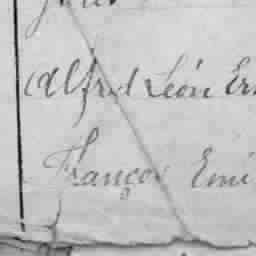 Alfred Léon Er
François Emi